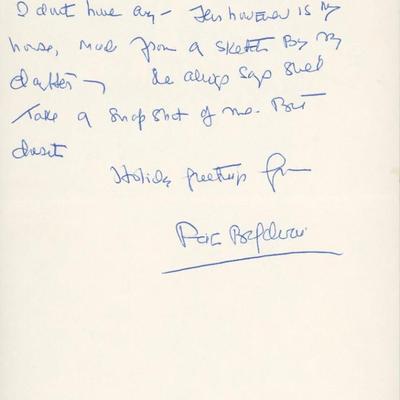 I dont have any — This however is my
house, made from a sketch By my
daughter — She always says she'll
Take a snap shot of me. But
doesnt
Holiday greetings from